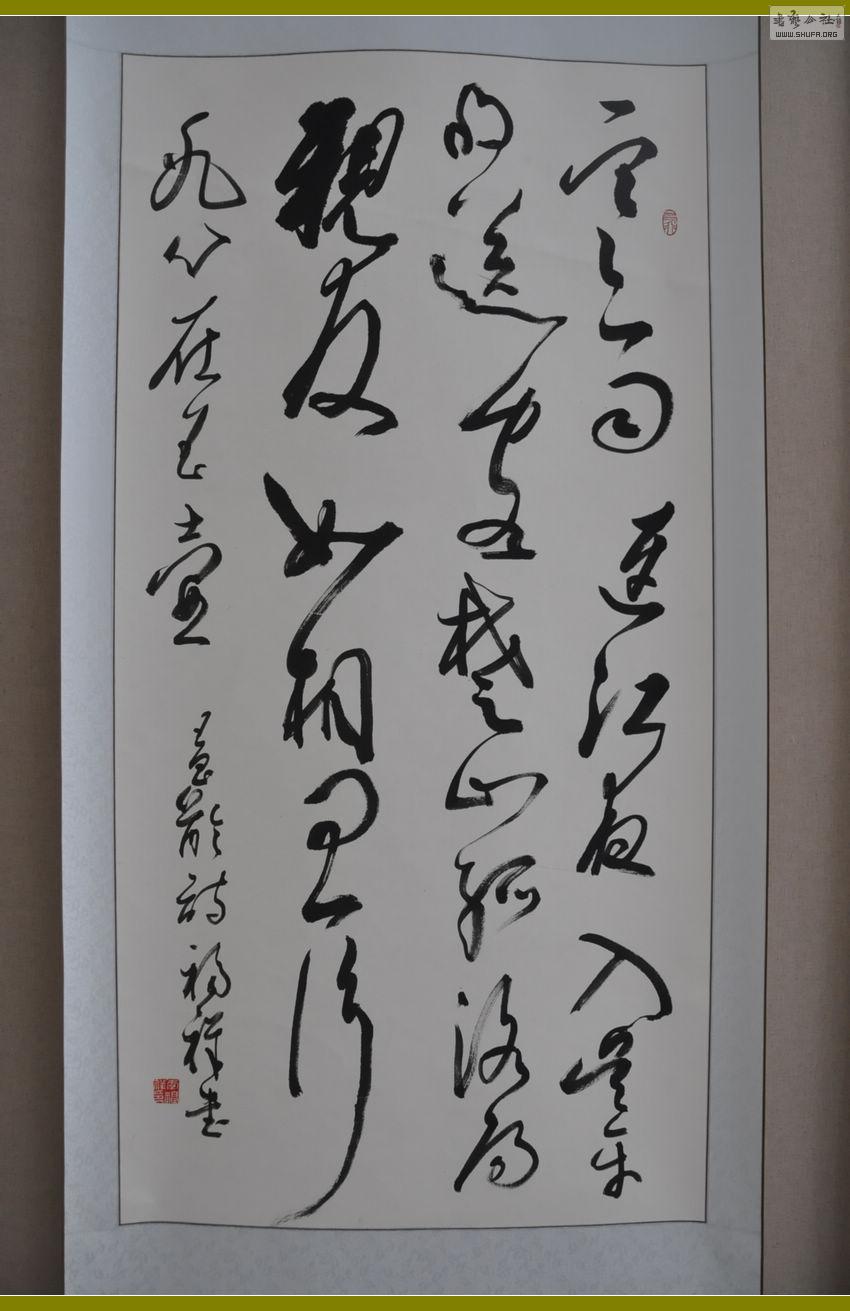 寒雨連江夜入吳平
明送客楚山孤洛陽
親友如相問一片
冰心在玉壺 王昌齡詩 福祥書
書藝公社
WWW.SHUFA.ORG